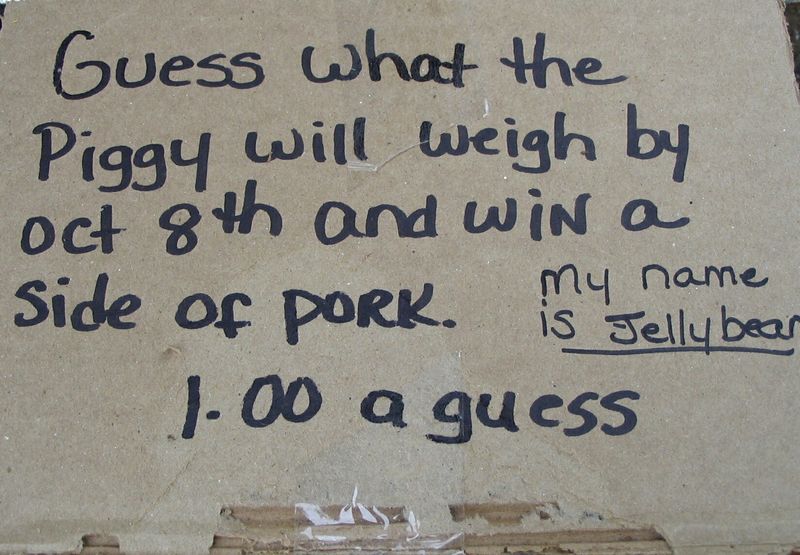 Guess what the
Piggy will weigh by
oct 8th and WiN a
side of PORK.
my name
is Jellybean
1.00 a guess